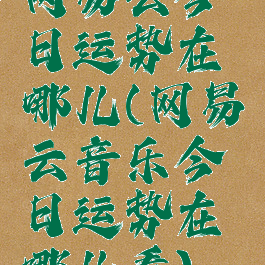 网易云今
日运势在
哪儿(网易
云音乐今
日运势在
哪儿看)